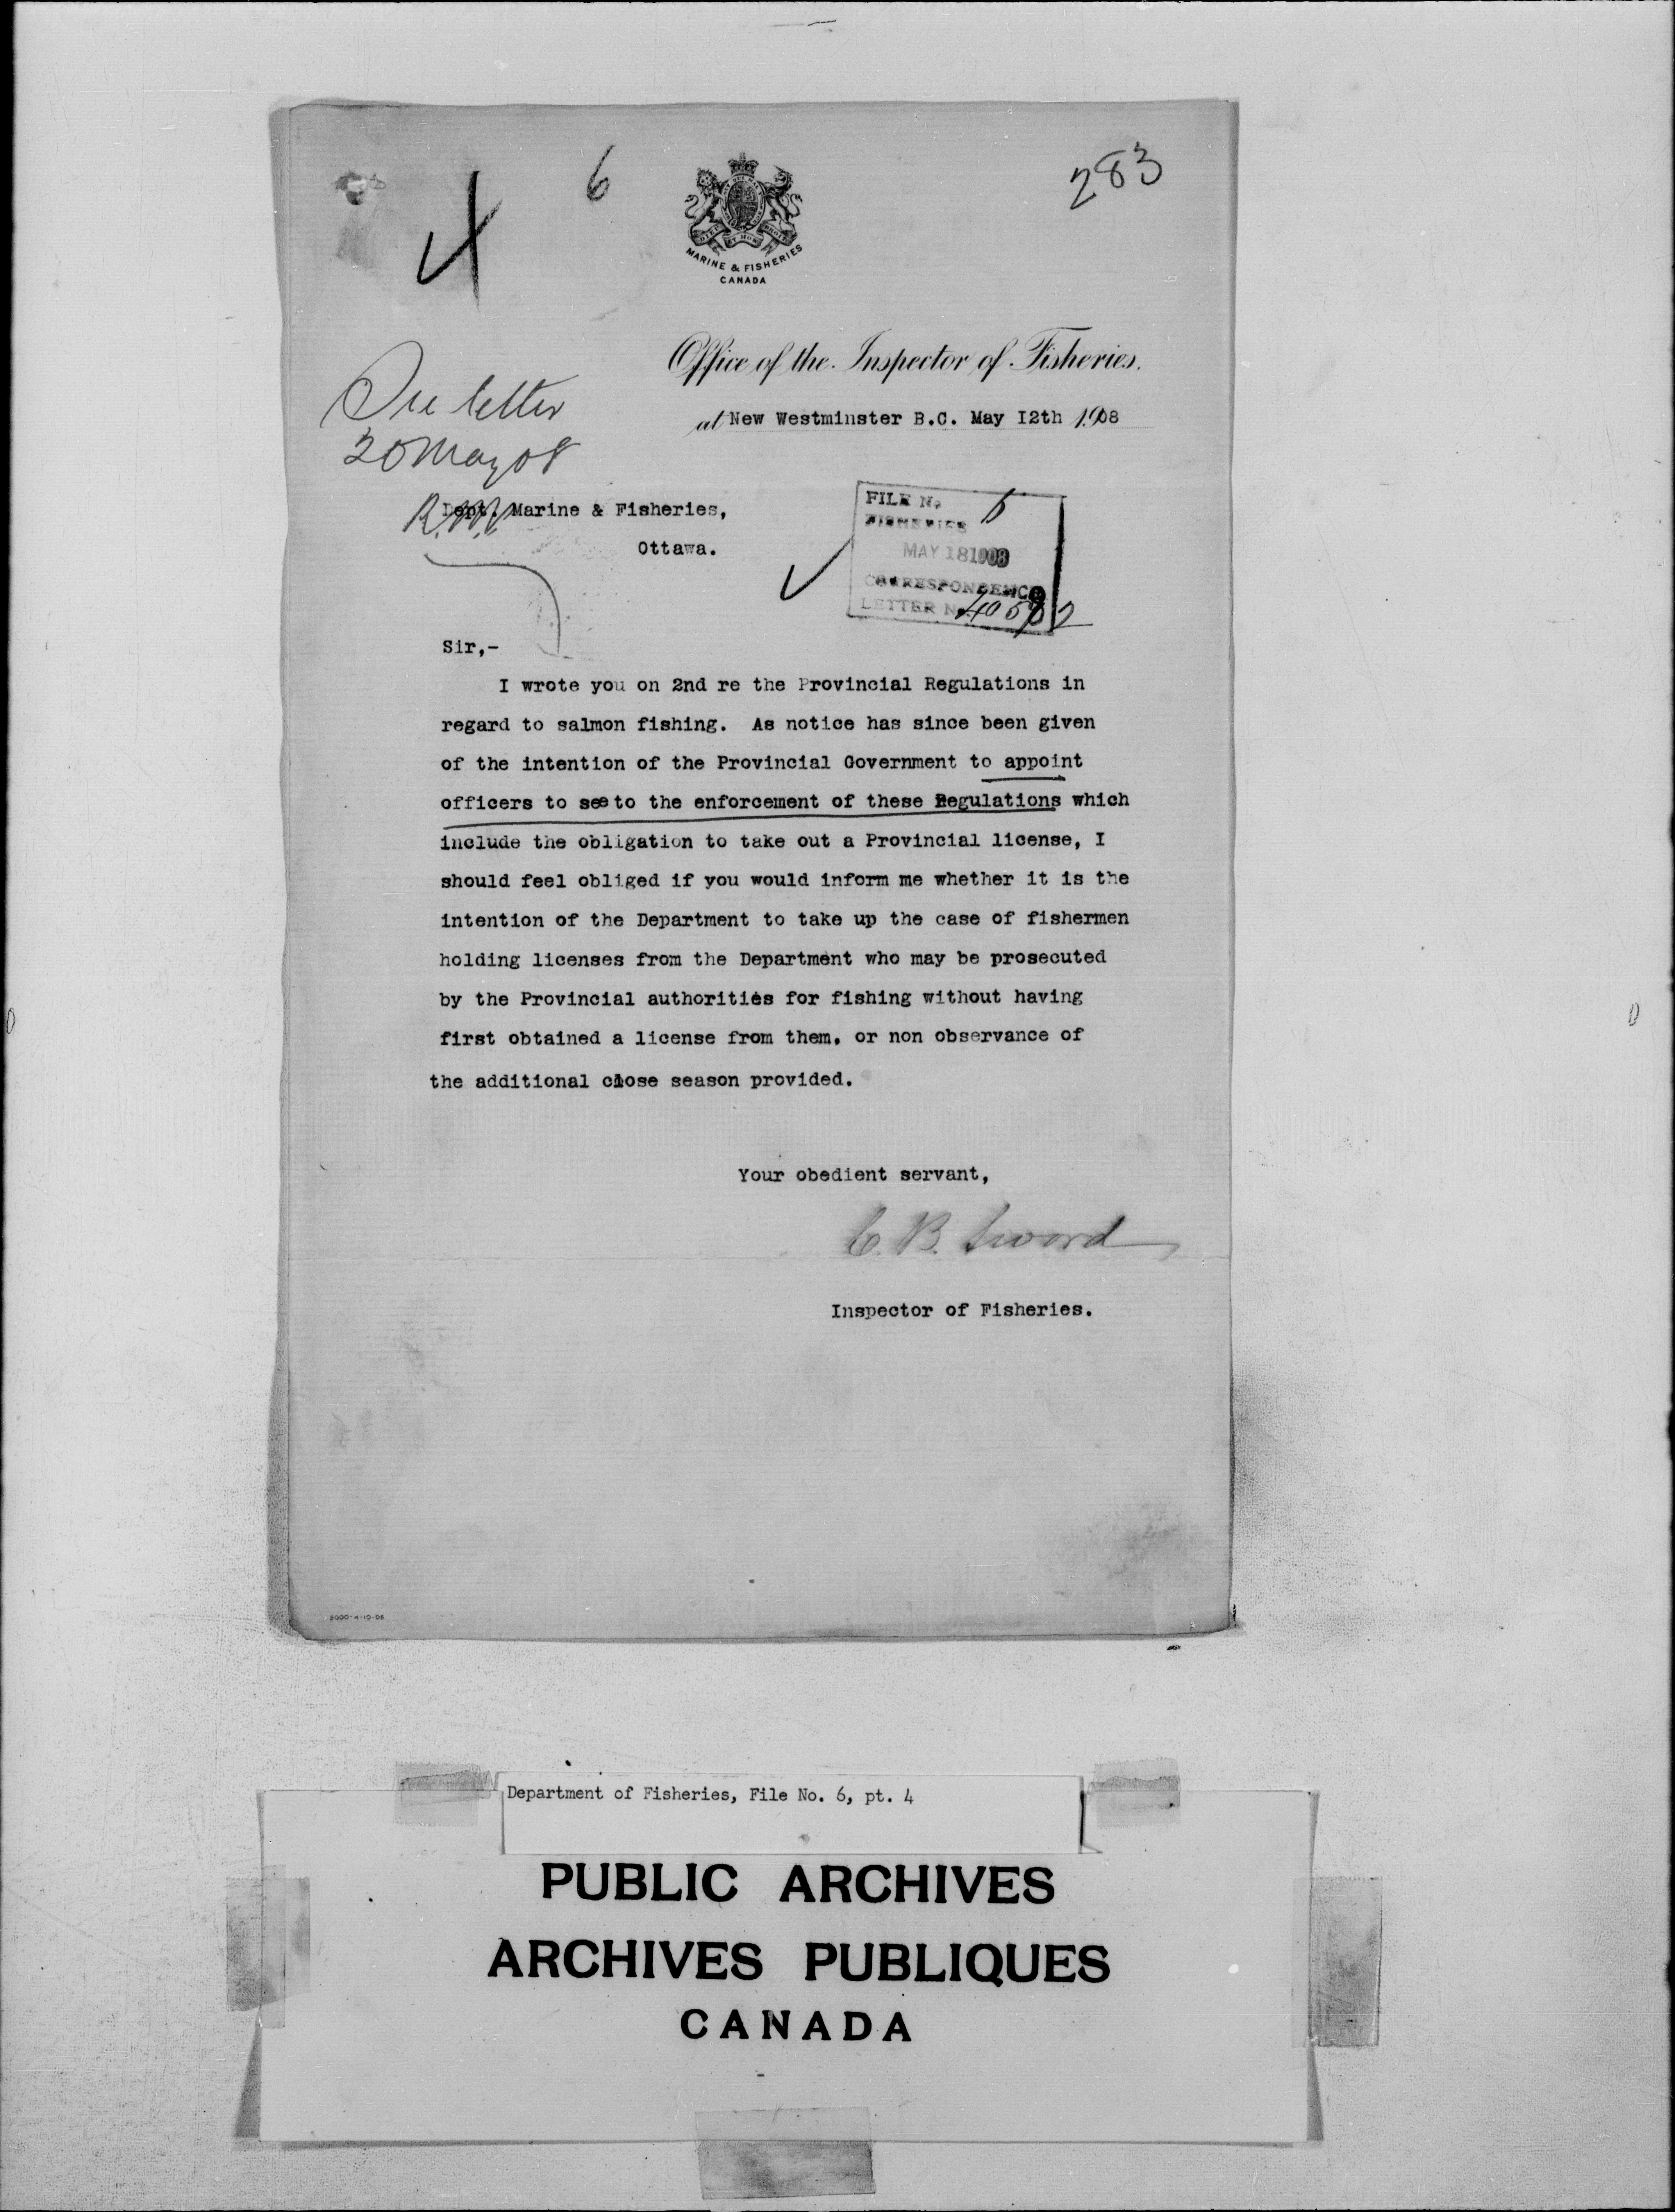 6
283
DIEU ET MON DROIT
MARINE & FISHERIES
CANADA
Office of the Inspector of Fisheries.
at New Westminster B.C. May I2th 1908
See letter
20 May 08
Dept. Marine & Fisheries,
Ottawa.
FILE No. 6
FISHERIES
MAY 18 1908
CORRESPONDENCE
LETTER No
Sir,-
I wrote you on 2nd re the Provincial Regulations in
regard to salmon fishing. As notice has since been given
of the intention of the Provincial Government to appoint
officers to see to the enforcement of these Regulations which
include the obligation to take out a Provincial license, I
should feel obliged if you would inform me whether it is the
intention of the Department to take up the case of fishermen
holding licenses from the Department who may be prosecuted
by the Provincial authorities for fishing without having
first obtained a license from them, or non observance of
the additional close season provided.
Your obedient servant,
C. B. Sword
Inspector of Fisheries.
Department of Fisheries, File No. 6, pt. 4
PUBLIC ARCHIVES
ARCHIVES PUBLIQUES
CANADA